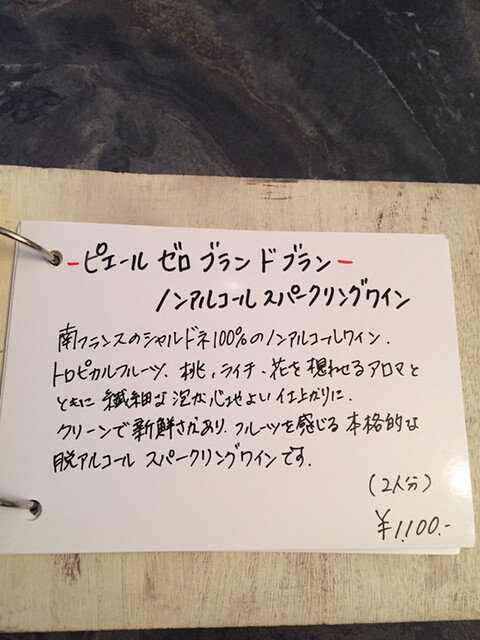 -ピエール ゼロ ブラン ド ブラン-
ノンアルコール スパークリングワイン
南フランスのシャルドネ100%のノンアルコールワイン.
トロピカルフルーツ、桃、ライチ・花を想わせるアロマと
ともに 繊細な泡が心地よい仕上がりに.
クリーンで新鮮さがあり、フルーツを感じる本格的な
脱アルコール スパークリングワインです.
(2人分)
¥1,100.-